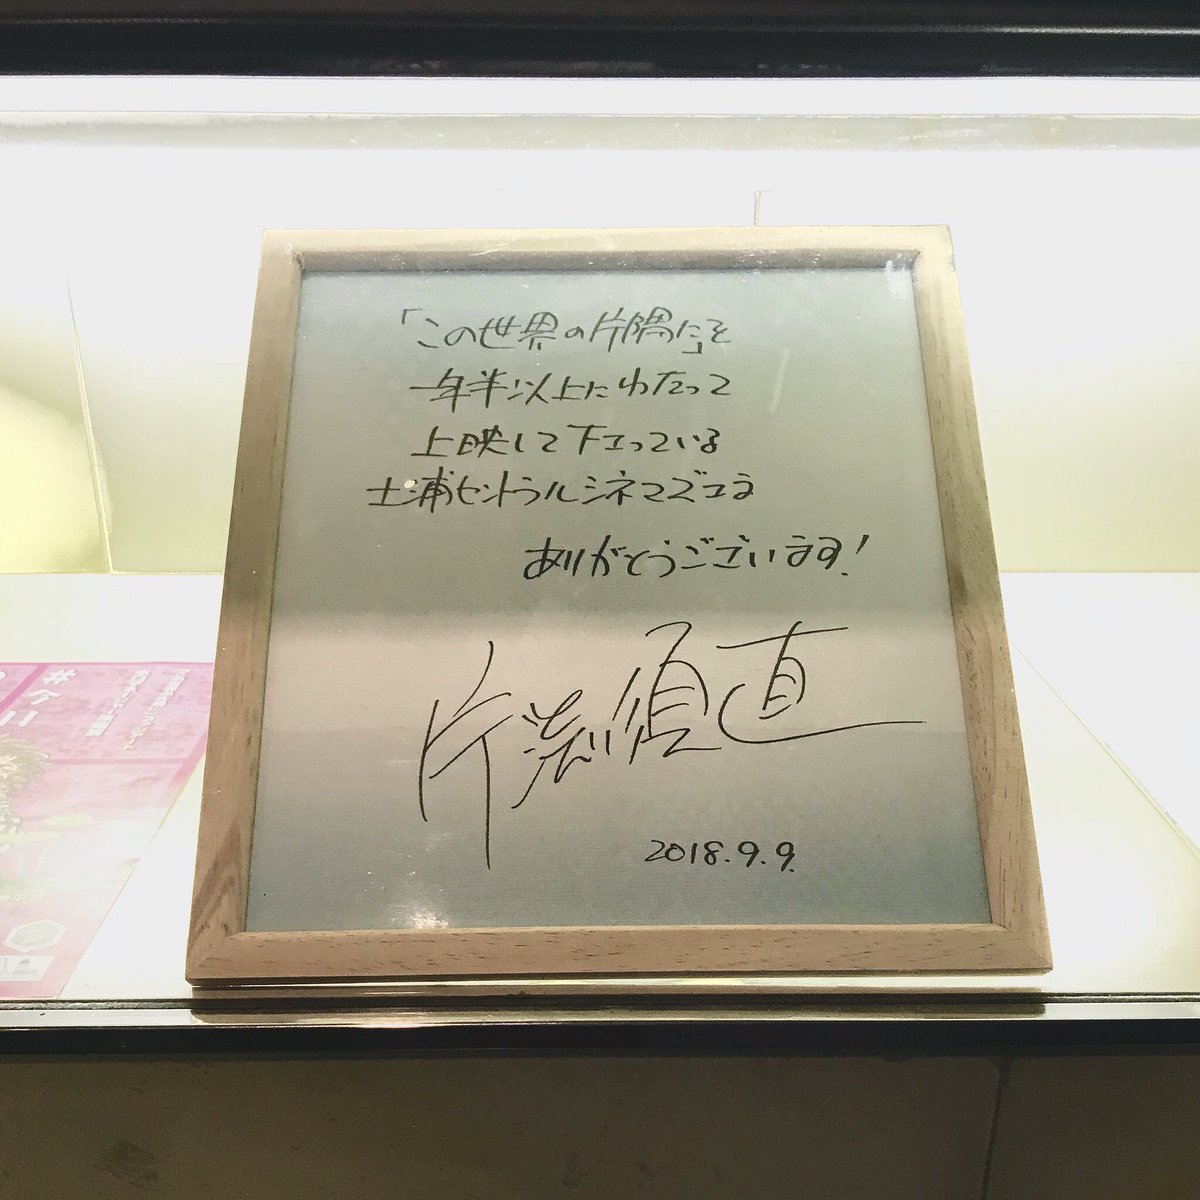 「この世界の片隅に」を
一年半以上にわたって
上映して下さっている
土浦セントラルシネマズさま
ありがとうございます!
片渕須直
2018.9.9.